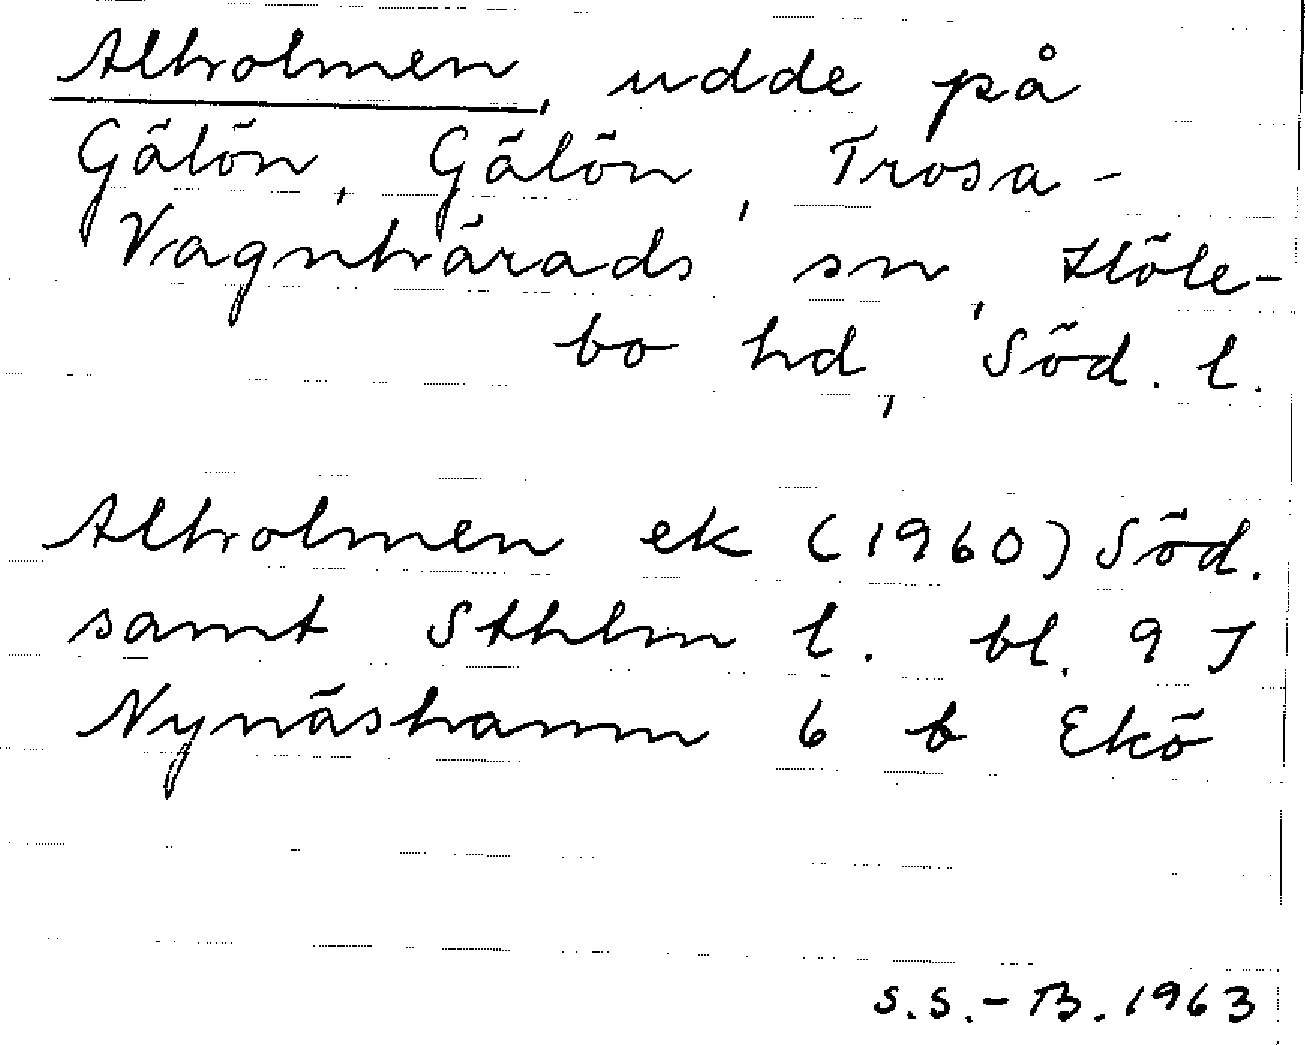 Alholmen, udde på
Gälön, Gälön, Trosa-
Vagnhärads sn, Höle-
bo hd, Söd. l.
Alholmen ek (1960) Söd.
samt Sthlm l. bl. 9 J
Nynäshamn 6 b Ekö
S.S.-B. 1963